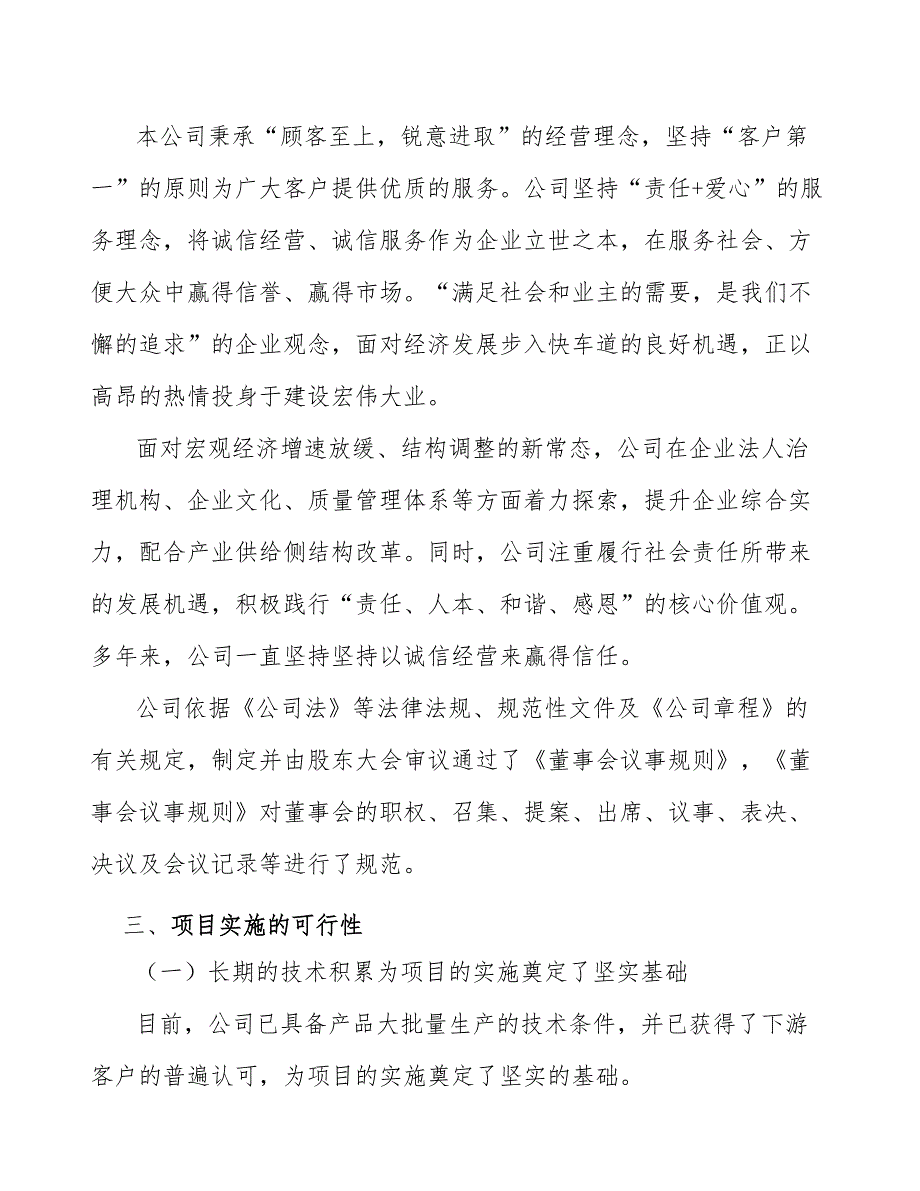 本公司秉承“顾客至上，锐意进取”的经营理念，坚持“客户第
一”的原则为广大客户提供优质的服务。公司坚持“责任+爱心”的服
务理念，将诚信经营、诚信服务作为企业立世之本，在服务社会、方
便大众中赢得信誉、赢得市场。“满足社会和业主的需要，是我们不
懈的追求”的企业观念，面对经济发展步入快车道的良好机遇，正以
高昂的热情投身于建设宏伟大业。
面对宏观经济增速放缓、结构调整的新常态，公司在企业法人治
理机构、企业文化、质量管理体系等方面着力探索，提升企业综合实
力，配合产业供给侧结构改革。同时，公司注重履行社会责任所带来
的发展机遇，积极践行“责任、人本、和谐、感恩”的核心价值观。
多年来，公司一直坚持坚持以诚信经营来赢得信任。
公司依据《公司法》等法律法规、规范性文件及《公司章程》的
有关规定，制定并由股东大会审议通过了《董事会议事规则》，《董
事会议事规则》对董事会的职权、召集、提案、出席、议事、表决、
决议及会议记录等进行了规范。
三、项目实施的可行性
（一）长期的技术积累为项目的实施奠定了坚实基础
目前，公司已具备产品大批量生产的技术条件，并已获得了下游
客户的普遍认可，为项目的实施奠定了坚实的基础。